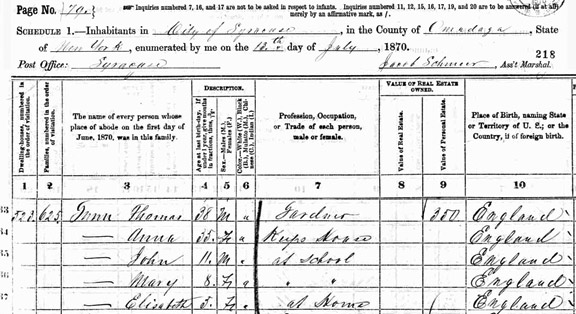 Page No. 79
Inquiries numbered 7, 16, and 17 are not to be asked in respect to infants. Inquiries numbered 11, 12, 15, 16, 17, 19, and 20 are to be answered (if at all)
merely by an affirmative mark, as /.
SCHEDULE 1.—Inhabitants in City of Syracuse, in the County of Onondaga, State
of New York, enumerated by me on the 12th day of July, 1870.
218
Post Office: Syracuse Jacob, Ass't Marshal.
Dwelling-houses, numbered in the order of visitation.
Families, numbered in the order of visitation.
The name of every person whose place of abode on the first day of June, 1870, was in this family.
DESCRIPTION.
Age at last birth-day. If under 1 year, give months in fractions, thus,
Sex.—Males (M.), Females (F.)
Color.—White (W.), Black (B.), Mulatto (M.), Chinese (C.), Indian (I.)
Profession, Occupation, or Trade of each person, male or female.
VALUE OF REAL ESTATE OWNED.
Value of Real Estate.
Value of Personal Estate.
Place of Birth, naming State or Territory of U. S.; or the Country, if of foreign birth.
1 2 3 4 5 6 7 8 9 10
33 523 625 Thomas 38 M " 350 England
34 — Anna 35 F " Keeps House England
35 — John 11 M " at School England
36 — Mary 8 F " " " England
37 — Elisabeth 5 F " at Home England